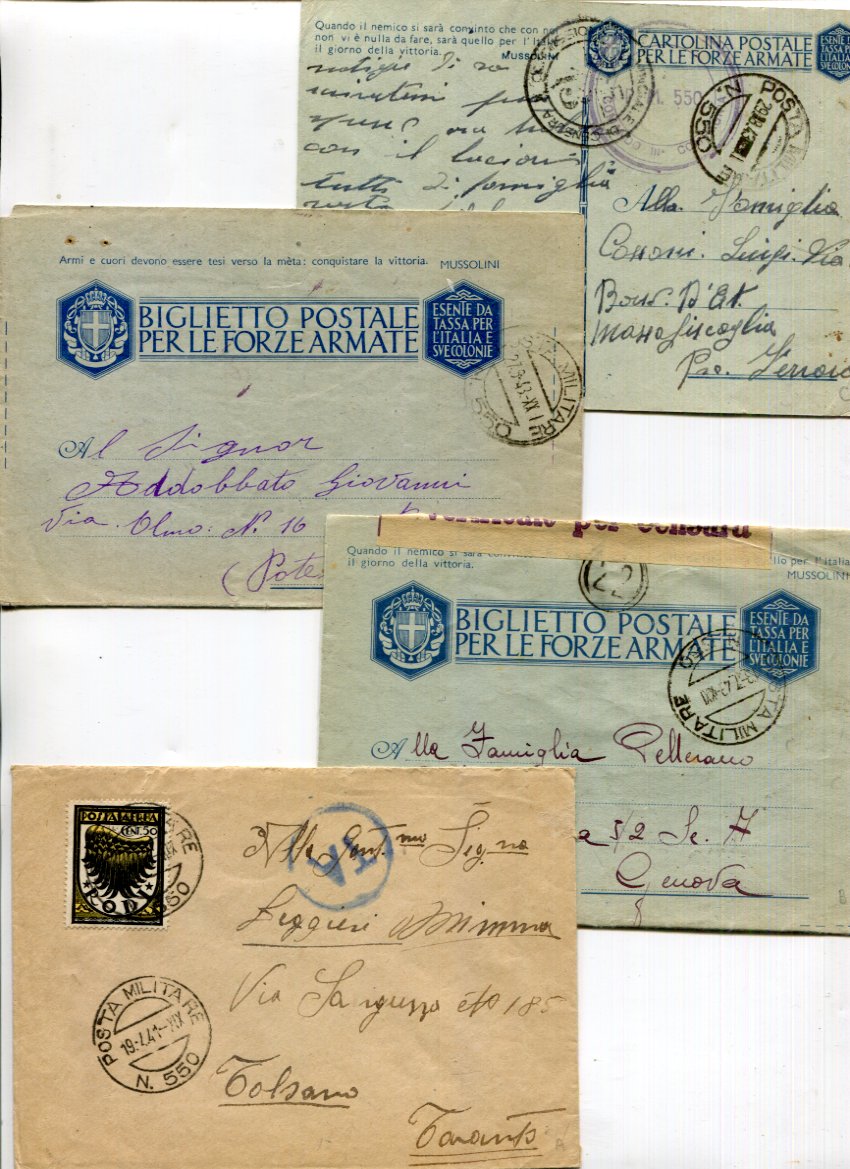 Quando il nemico si sarà convinto che con noi
non vi è nulla da fare, sarà quello per l'It
il giorno della vittoria.
MUSSOLINI
CARTOLINA POSTALE
PER LE FORZE ARMATE
ESENTE DA
TASSA PER
L'ITALIA E
SVE COLONIE
P.M. 550
POSTA MILITARE
N. 550
con il
tutti di famiglia
Alla Famiglia
Luigi Via
Massafiscaglia
Armi e cuori devono essere tesi verso la mèta: conquistare la vittoria. MUSSOLINI
BIGLIETTO POSTALE
PER LE FORZE ARMATE
ESENTE DA
TASSA PER
L'ITALIA E
SVE COLONIE
POSTA MILITARE
27.9.43-XXI
550
Al Signor
Addobbato Giovanni
Via Olmo: N. 16
(Pote
Verificato per censura
Quando il nemico si sarà convinto
llo per l'Italia
il giorno della vittoria.
MUSSOLINI
22
BIGLIETTO POSTALE
PER LE FORZE ARMATE
ESENTE DA
TASSA PER
L'ITALIA E
SVE COLONIE
POSTA MILITARE
N. 550
Alla Famiglia Pellerano
a 5/2 Sc. A
Genova
POSTA AEREA
CENT. 50
RODI
550
TA
Alla Gent.mo Sig.na
Leggieri Mimma
Via
185
Talsano
Taranto
POSTA MILITARE
19.7.41-XIX
N. 550